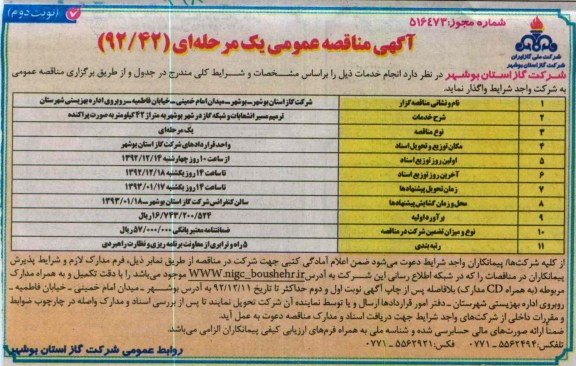 (نوبت دوم)
شماره مجوز: ۵۱۶۴۷۳
آگهی مناقصه عمومی یک مرحله‌ای (۹۲/۴۲)
شرکت ملی گاز ایران
شرکت گاز استان بوشهر
شرکت گاز استان بوشهر در نظر دارد انجام خدمات ذیل را براساس مشخصات و شرایط کلی مندرج در جدول و از طریق برگزاری مناقصه عمومی
به شرکت واجد شرایط واگذار نماید.
۱ نام و نشانی مناقصه گزار شرکت گاز استان بوشهر ـ بوشهر ـ میدان امام خمینی ـ خیابان فاطمیه ـ روبروی اداره بهزیستی شهرستان
۲ شرح خدمات ترمیم مسیر انشعابات و شبکه گاز در شهر بوشهر به متراژ ۴۲ کیلومتر به صورت پراکنده
۳ نوع مناقصه یک مرحله‌ای
۴ مکان توزیع و تحویل اسناد واحد قراردادهای شرکت گاز استان بوشهر
۵ اولین روز توزیع اسناد از ساعت ۱۰ روز چهارشنبه ۱۳۹۲/۱۲/۱۴
۶ آخرین روز توزیع اسناد تا ساعت ۱۴ روز یکشنبه ۱۳۹۲/۱۲/۱۸
۷ زمان تحویل پیشنهادها تا ساعت ۱۴ روز یکشنبه ۱۳۹۳/۰۱/۱۷
۸ محل و زمان گشایش پیشنهادها سالن کنفرانس شرکت گاز استان بوشهر ـ ۱۳۹۳/۰۱/۱۸
۹ برآورد اولیه ۱۶/۷۴۳/۲۰۰/۵۲۴ ریال
۱۰ نوع و میزان تضمین شرکت در مناقصه ضمانتنامه معتبر بانکی ۵۷۰/۰۰۰/۰۰۰ ریال
۱۱ رتبه بندی ۵ راه و ترابری از معاونت برنامه ریزی و نظارت راهبردی
از کلیه شرکت‌ها/ پیمانکاران واجد شرایط دعوت می‌شود ضمن اعلام آمادگی کتبی جهت شرکت در مناقصه از طریق نمابر ذیل، فرم مدارک لازم و شرایط پذیرش
پیمانکاران در مناقصات را که در شبکه اطلاع رسانی این شرکت به آدرس WWW.nigc_boushehr.ir موجود می‌باشد را با دقت تکمیل و به همراه مدارک
مربوطه (به همراه CD مدارک) بلافاصله پس از چاپ آگهی نوبت اول و دوم حداکثر تا تاریخ ۹۲/۱۲/۱۱ به آدرس بوشهر ـ میدان امام خمینی ـ خیابان فاطمیه ـ
روبروی اداره بهزیستی شهرستان ـ دفتر امور قراردادها ارسال و یا توسط نماینده آن شرکت تحویل نمایند تا پس از بررسی اسناد و مدارک واصله در چارچوب ضوابط
و مقررات داخلی از شرکت‌های واجد شرایط جهت دریافت اسناد و مدارک مناقصه دعوت به عمل آید.
ضمناً ارائه صورت‌های مالی حسابرسی شده و شناسه ملی به همراه فرم‌های ارزیابی کیفی پیمانکاران الزامی می‌باشد.
تلفکس: ۵۵۶۲۴۹۴ ـ ۰۷۷۱ فکس: ۵۵۶۲۹۲۱ ـ ۰۷۷۱
روابط عمومی شرکت گاز استان بوشهر